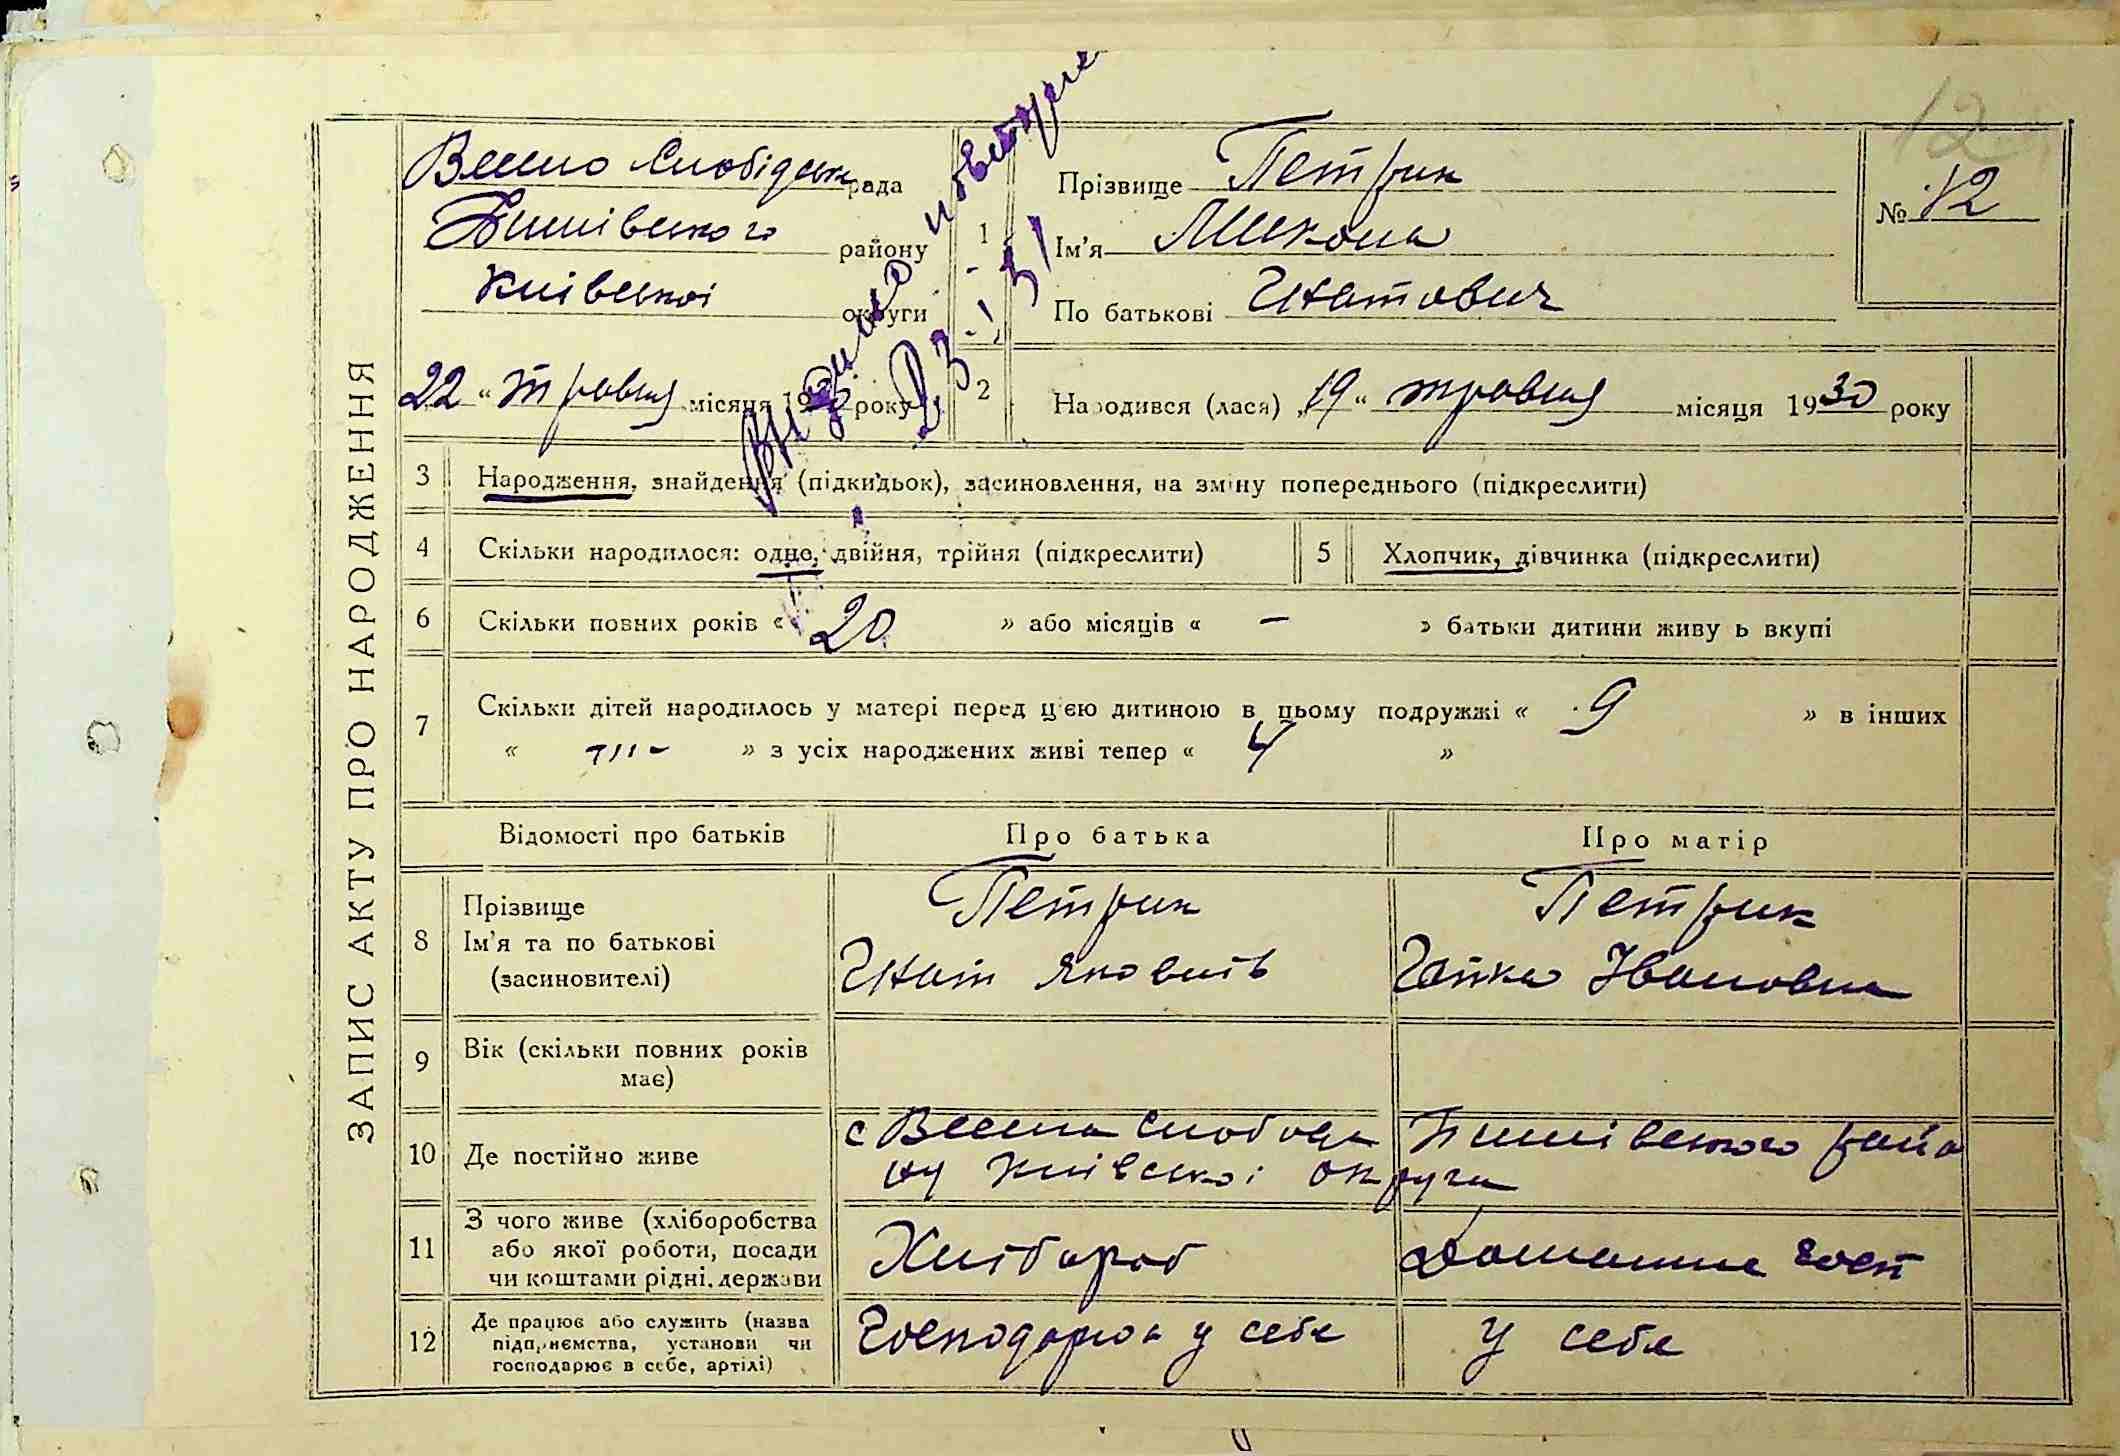 12
ЗАПИС АКТУ ПРО НАРОДЖЕННЯ
Весело Слобідськ рада
району
Київської округи
22 " травня місяця 1930 року
Видано повторне
23-I 31
№ 12
1 Прізвище Петрик
Ім'я Микола
По батькові Гнатович
2 Народився (лася) "19" травня місяця 1930 року
3 Народження, знайдення (підкидьок), засиновлення, на зміну попереднього (підкреслити)
4 Скільки народилося: одно, двійня, трійня (підкреслити)
5 Хлопчик, дівчинка (підкреслити)
6 Скільки повних років « 20 » або місяців « – » батьки дитини живуть вкупі
7 Скільки дітей народилось у матері перед цією дитиною в цьому подружжі « 9 » в інших
« » з усіх народжених живі тепер « 4 »
Відомості про батьків Про батька Про матір
8 Прізвище
Ім'я та по батькові
(засиновителі)
Петрик
Гнат Яковить
Петрик
Гапка Івановна
9 Вік (скільки повних років
має)
10 Де постійно живе
с Весела Слобода району Київської округи
11 З чого живе (хліборобства
або якої роботи, посади
чи коштами рідні, держави
Хлібороб
Домашнє госп
12 Де працює або служить (назва
підприємства, установи чи
господарює в себе, артілі)
Господарює у себе
у себе